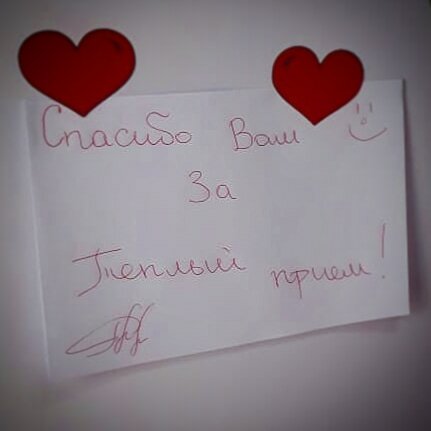 Спасибо Вам
За
Теплый прием!